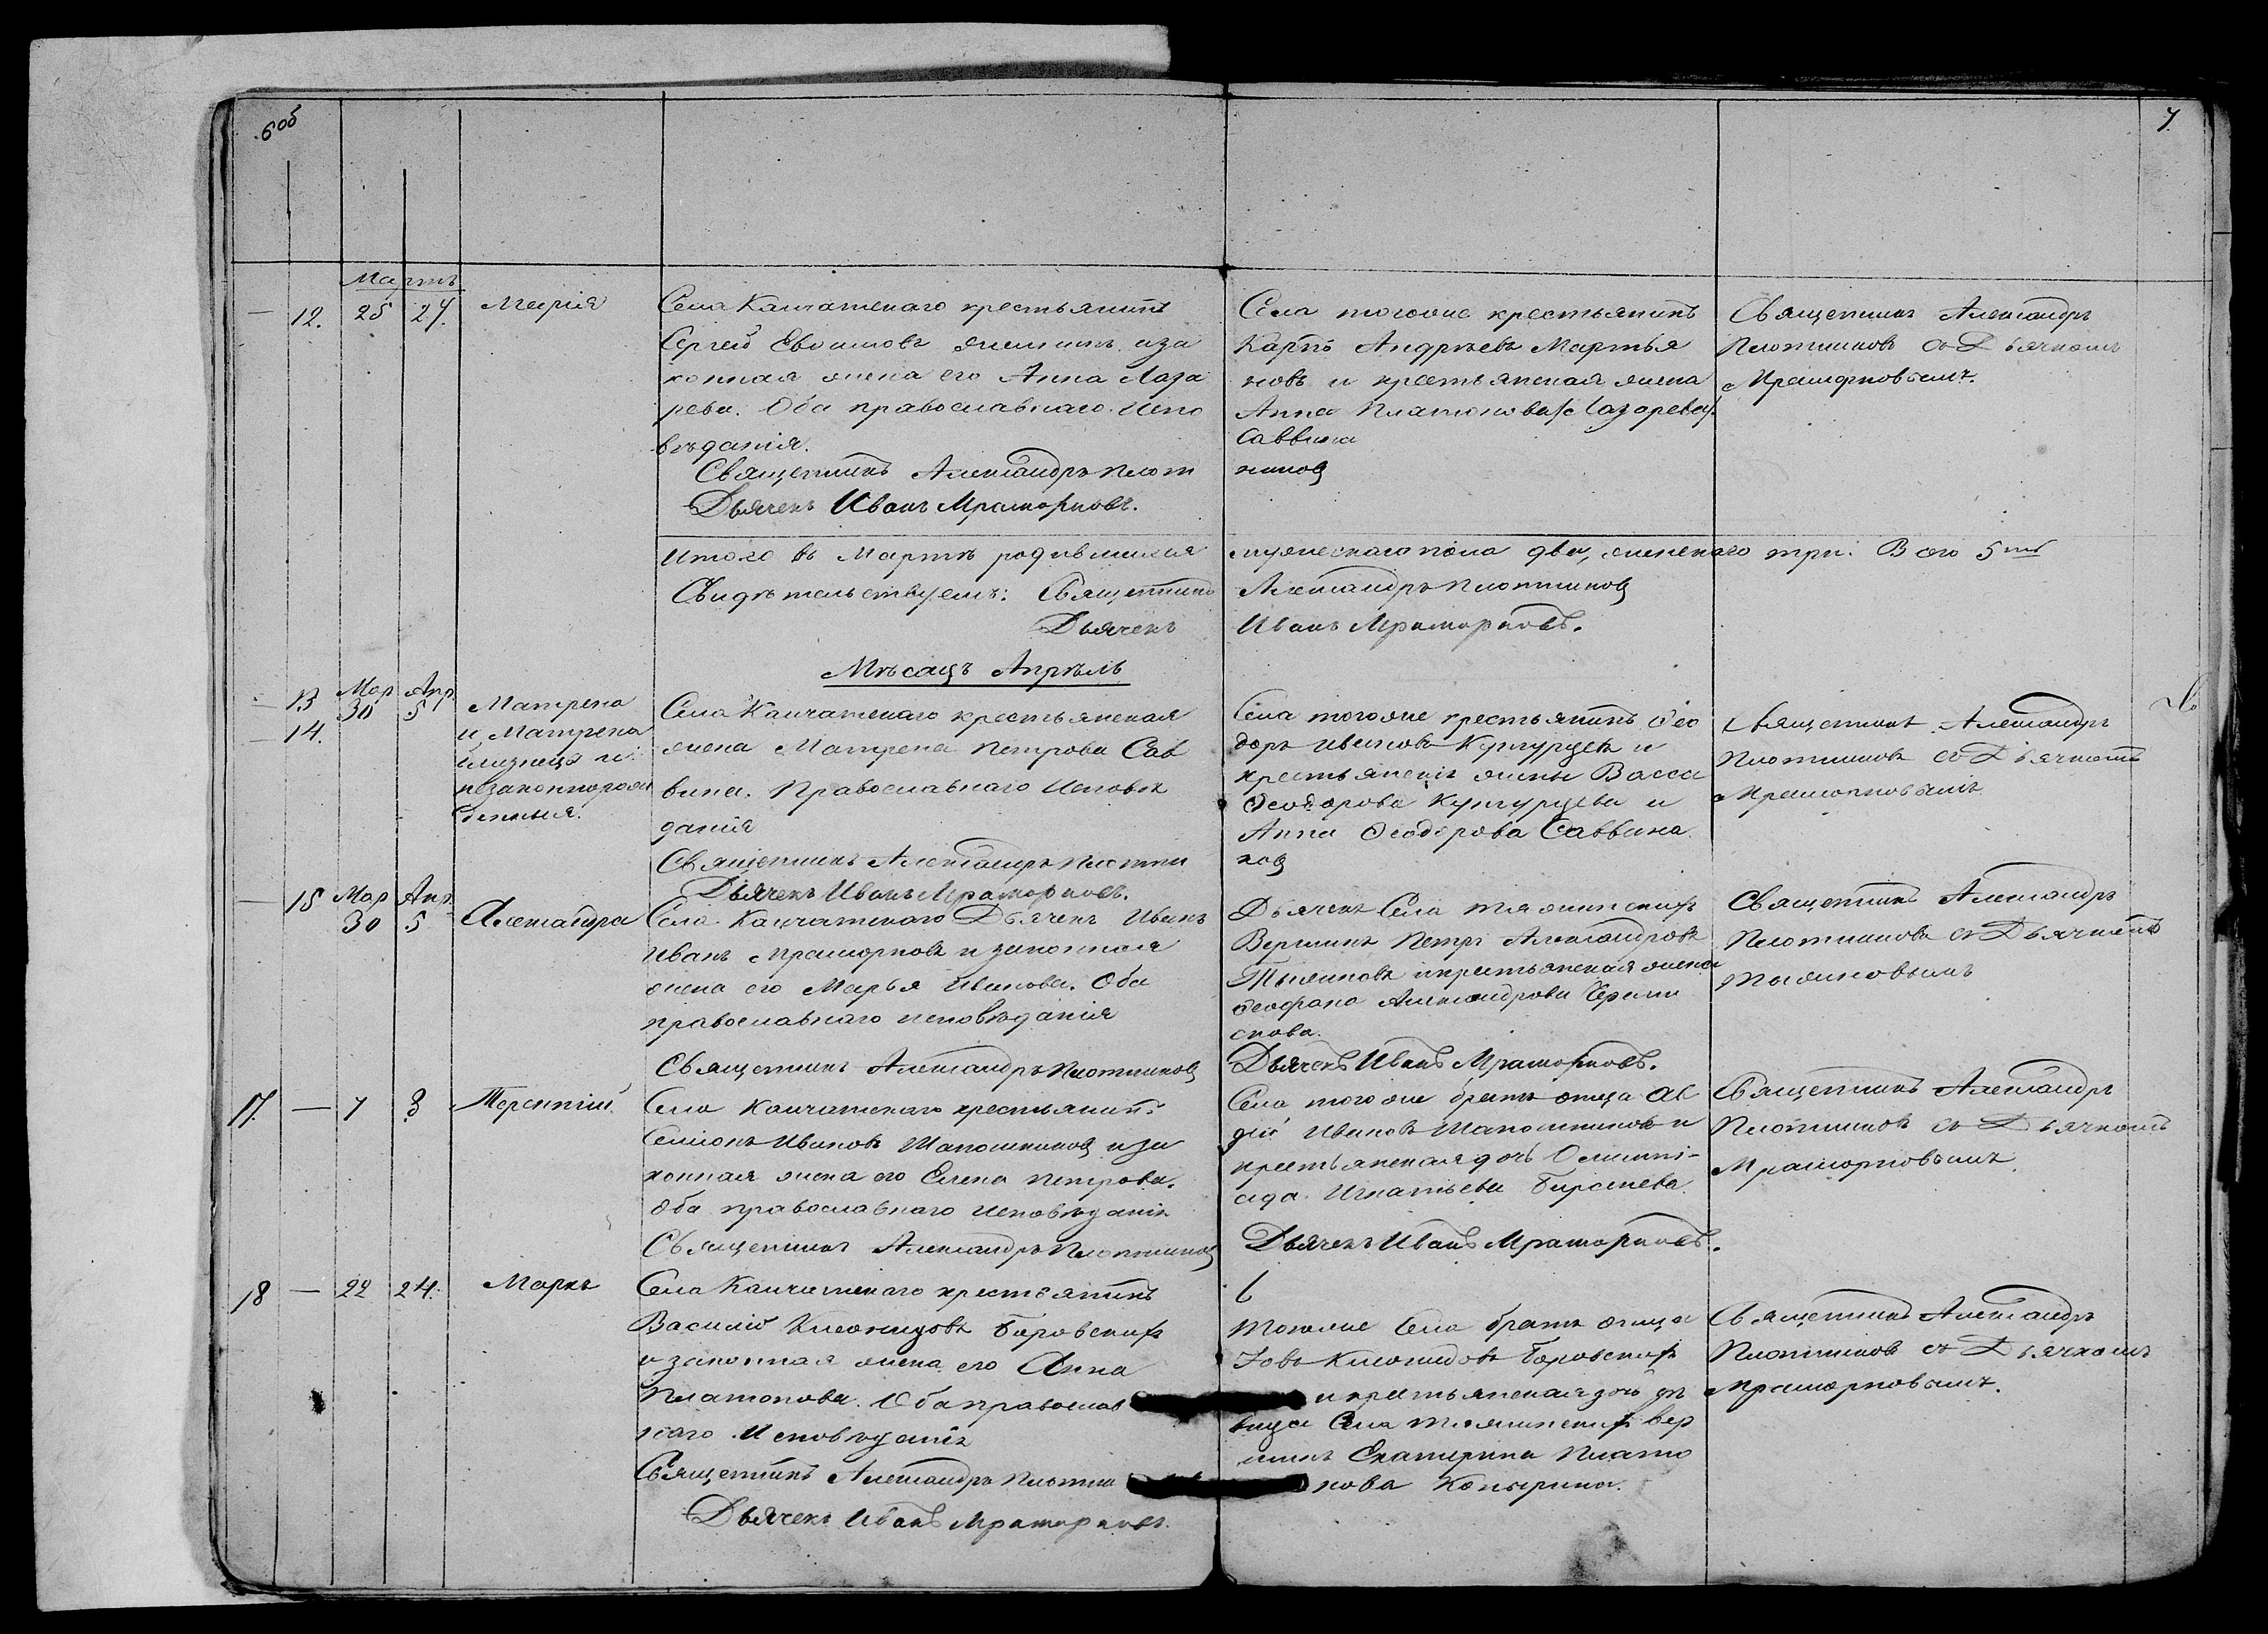 6 об
7.
Мартъ
12.
25
27.
Марія
Села Камчатскаго крестьянинъ
Сергей Евфимовъ и за
конная жена его Анна Лаза
рева. Оба православнаго испо
вѣданія.
Священникъ Александръ Плот
Дьячекъ Иванъ Мраморновъ.
Села тогоже крестьянинъ
Карпъ Андреевъ Мартья
новъ и крестьянская жена
Анна Платонова Лазарева
Саввина
никовъ
Священникъ Александръ
Плотниковъ съ Дьячкомъ
Мраморновымъ.
Итого въ Мартѣ родившихся
мужескаго пола два, женскаго три. Всего 5ть
Свидѣтельствуемъ: Священникъ
Александръ Плотниковъ
Дьячекъ
Иванъ Мраморновъ.
Мѣсяцъ Апрѣль
13
14.
Мар
30
Апр.
5
Матрена
и Матрена
близнецы и
незаконнорож
денныя.
Села Камчатскаго крестьянская
жена Матрена Петрова Сав
вина. Православнаго Исповѣ
данія
Священникъ Александръ Плотни
Дьячекъ Иванъ Мраморновъ.
Села тогоже крестьянинъ Ѳео
доръ Ивановъ Кунгурцевъ и
крестьянскія жены Васса
Ѳеодорова Кунгурцева и
Анна Ѳеодорова Саввина
ковъ
Священникъ Александръ
Плотниковъ съ Дьячкомъ
Мраморновымъ
15
Мар
30
Апр.
5
Александра
Села Камчатскаго Дьячекъ Иванъ
Иванъ Мраморновъ и законная
жена его Марья Иванова. Оба
православнаго исповѣданія
Священникъ Александръ Плотниковъ
Дьячекъ Села Тляжинскихъ
Вершинъ Петръ Александровъ
и крестьянская жена
Ѳеофана Александрова Череми
снова.
Дьячекъ Иванъ Мраморновъ.
Священникъ Александръ
Плотниковъ съ Дьячкомъ
17.
7
8
Терентій.
Села Камчатскаго крестьянинъ
Семіонъ Ивановъ Шапошниковъ и за
конная жена его Елена Петрова.
Оба православнаго исповѣданія
Священникъ Александръ Плотниковъ
Села тогоже братъ отца Ав
дій Ивановъ Шапошниковъ и
крестьянская дочь Олимпі-
ада Игнатьева
Дьячекъ Иванъ Мраморновъ.
Священникъ Александръ
Плотниковъ съ Дьячкомъ
Мраморновымъ.
18
22
24.
Маркъ
Села Камчатскаго крестьянинъ
Василій Клеонидовъ Боровскихъ
и законная жена его Анна
Платонова. Оба православ
наго Исповѣданія
Священникъ Александръ Плотни
Дьячекъ Иванъ Мраморновъ.
Тогоже Села братъ отца
Іовъ Клеонидовъ Боровскихъ
и крестьянская дочь дѣ
вица Села Тляжинскихъ вер
шинъ Екатерина Плато
нова Копырина.
Священникъ Александръ
Плотниковъ съ Дьячкомъ
Мраморновымъ.